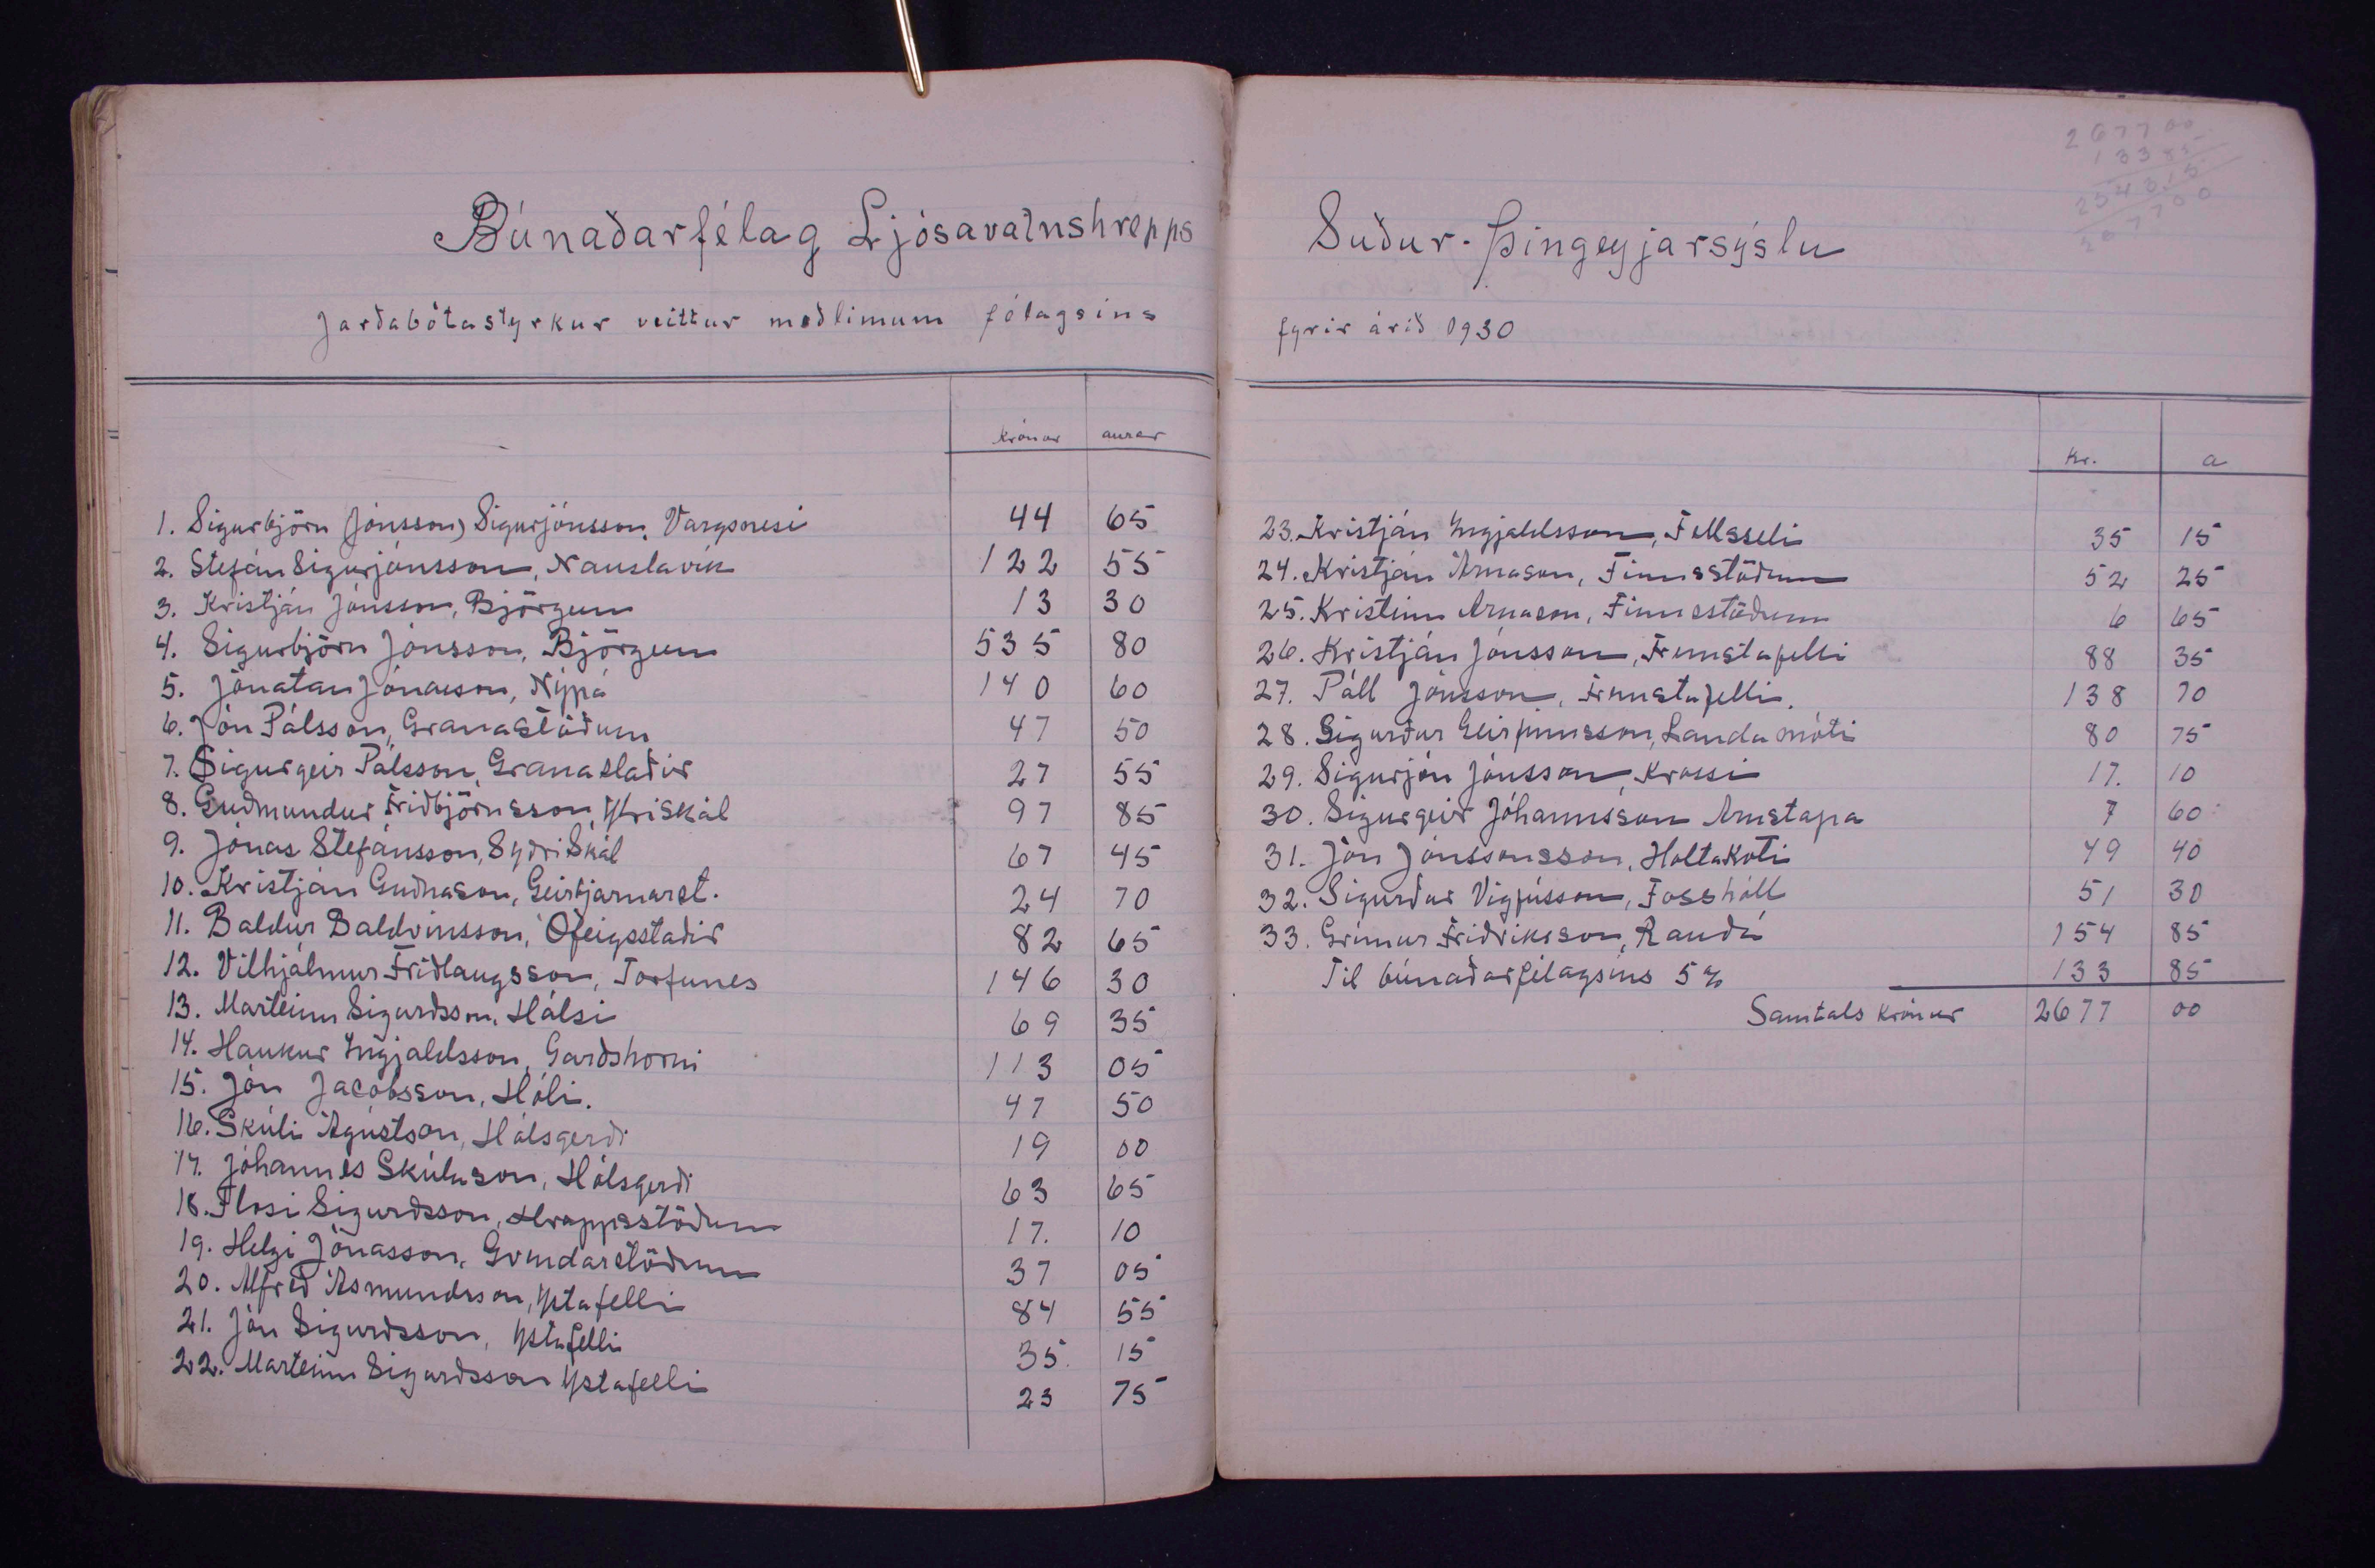 Búnaðarfélag Ljósavatnshrepps
Jarðabótastyrkur veittur meðlimum félagsins
krónur aurar
1. Sigurbjörn (Jónsson) Sigurjónsson, Vargsnesi 44 65
2. Stefán Sigurjónsson, Nauslavík 122 55
3. Kristján Jónsson, Björgum 13 30
4. Sigurbjörn Jónsson, Björgum 535 80
5. Jónatan Jónasson, Nýpá 140 60
6. Jón Pálsson, Granastöðum 47 50
7. Sigurgeir Pálsson, Granastaðir 27 55
8. Guðmundur Friðbjörnsson, Ytriskál 97 85
9. Jónas Stefánsson, Syðri Skál 67 45
10. Kristján Guðnason, Geirbjarnarst. 24 70
11. Baldur Baldvinsson, Ófeigsstaðir 82 65
12. Vilhjálmur Friðlaugsson, Torfunes 146 30
13. Marteinn Sigurðsson, Hálsi 69 35
14. Haukur Ingjaldsson, Garðshorni 113 05
15. Jón Jacobsson, Hóli. 47 50
16. Skúli Ágústson, Hálsgerði 19 00
17. Jóhannes Skúlason, Hálsgerði 63 65
18. Flosi Sigurðsson, Hrappsstöðum 17. 10
19. Helgi Jónasson, Gvendarstöðum 37 05
20. Alfreð Ásmundsson, Ystafelli 84 55
21. Jón Sigurðsson, Ystafelli 35. 15
22. Marteinn Sigurðsson Ystafelli 23 75
267700
13385
254315
267700
Suður-Þingeyjarsýslu
fyrir árið 1930
kr. a
23. Kristján Ingjaldsson, Fellsseli 35 15
24. Kristján Árnason, Finnsstöðum 52 25
25. Kristinn Arnason, Finnsstöðum 6 65
26. Kristján Jónsson, Fremstafelli 88 35
27. Páll Jónsson, Fremstafelli. 138 70
28. Sigurður Geirfinnsson, Landamóti 80 75
29. Sigurjón Jónsson, Krossi 17. 10
30. Sigurgeir Jóhannsson Arnstapa 7 60
31. Jón Jónssonsson, Holtakoti 49 40
32. Sigurður Vigfússon, Fosshóll 51 30
33. Grímur Friðriksson, Rauðá 154 85
Til búnaðarfélagsins 5% 133 85
Samtals krónur 2677 00